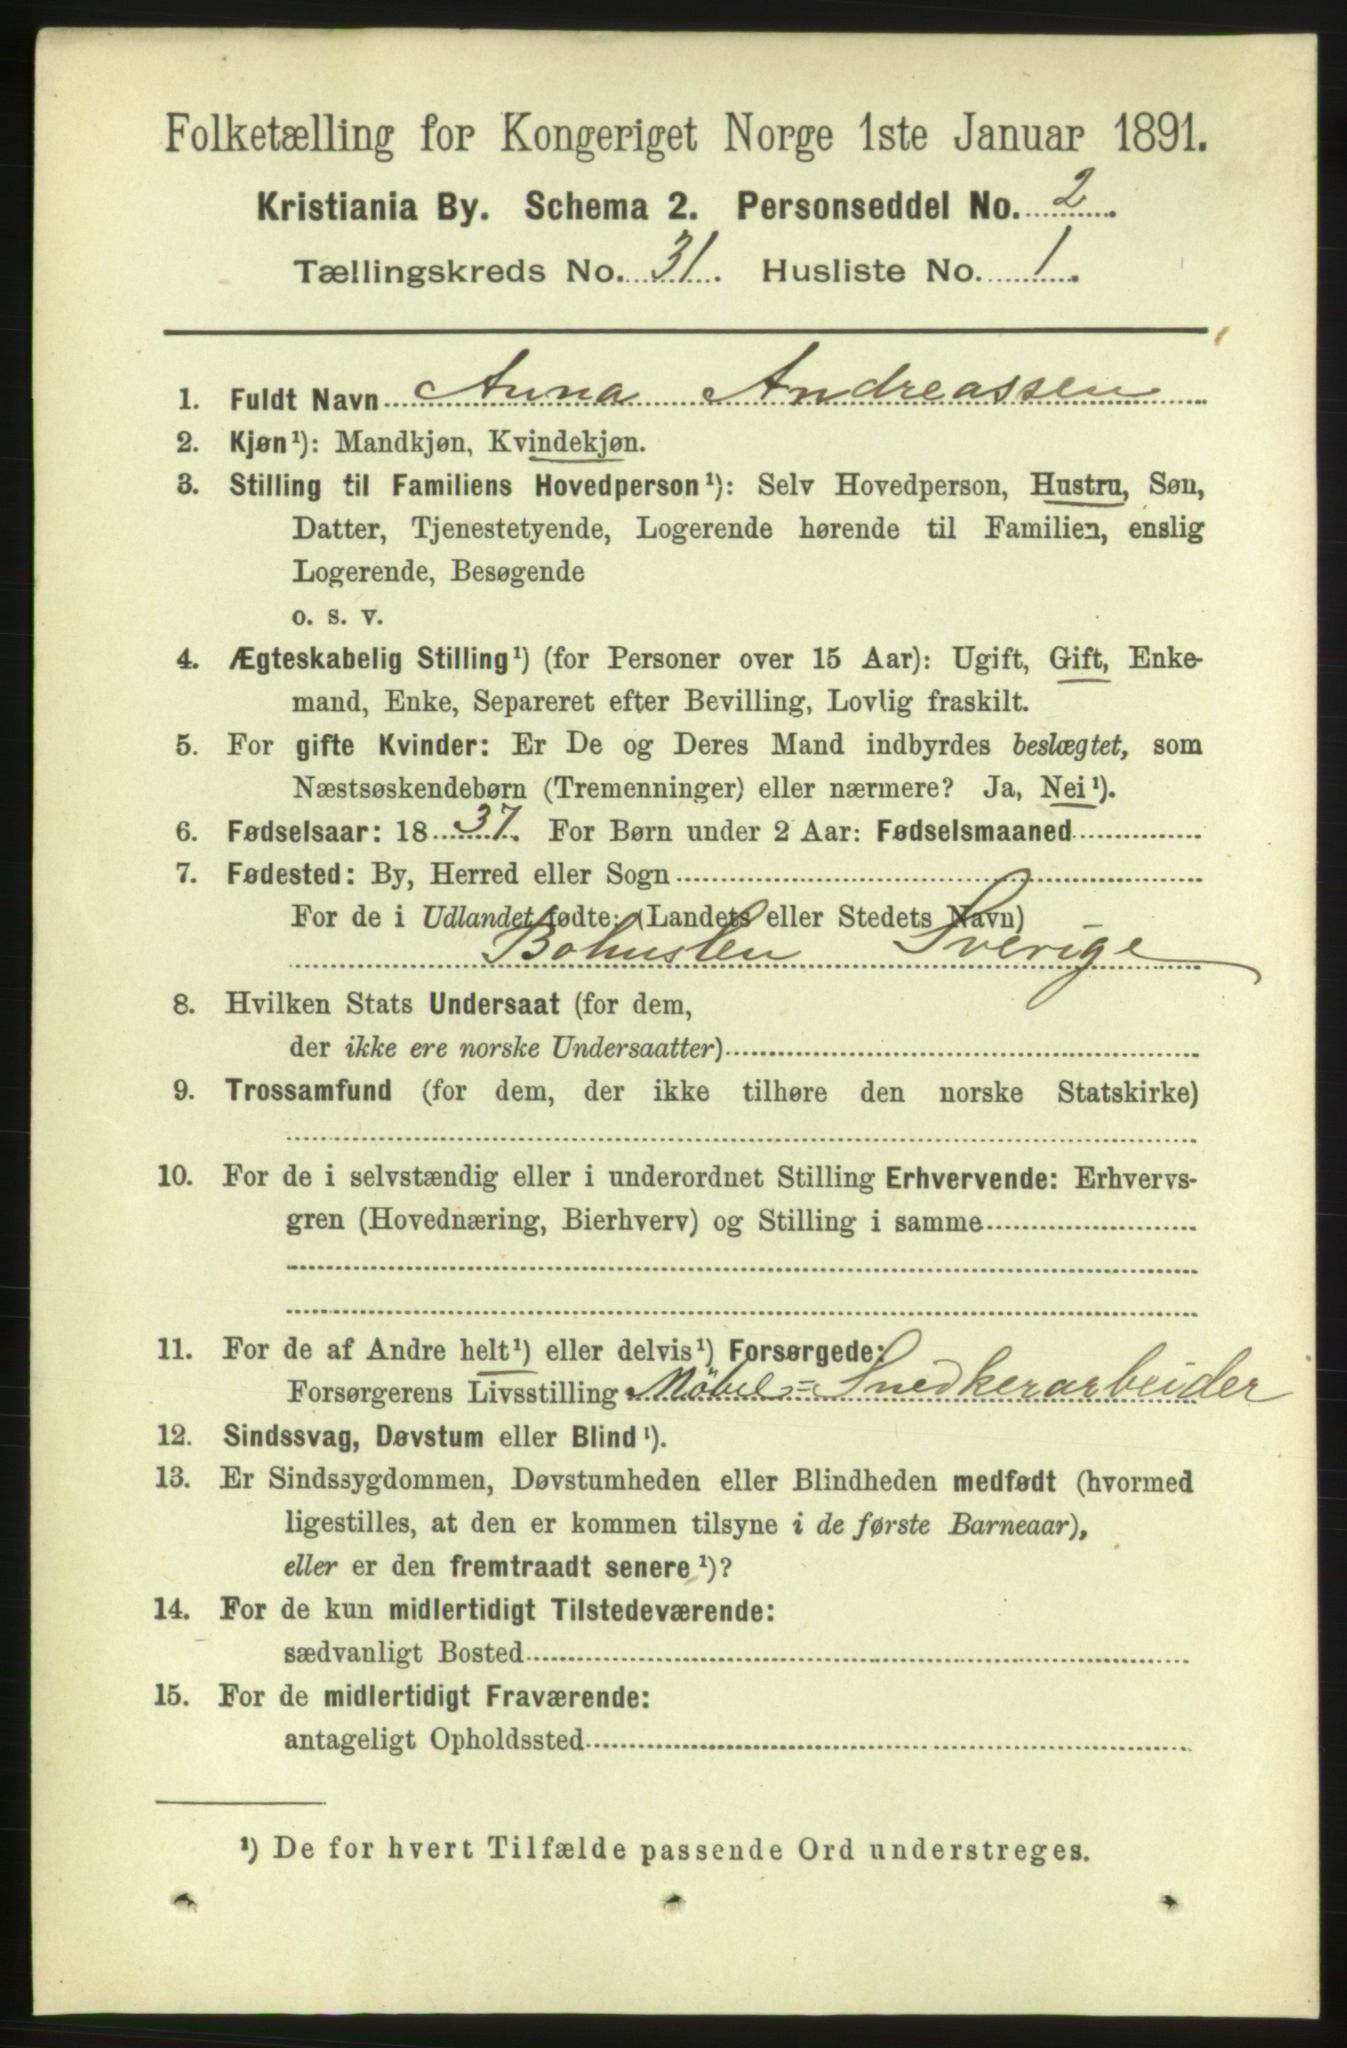 Folketælling for Kongeriget Norge 1ste Januar 1891.
Kristiania By. Schema 2. Personseddel No. 2.
Tællingskreds No. 31. Husliste No. 1.
1. Fuldt Navn Anna Andreassen
2. Kjøn¹): Mandkjøn, Kvindekjøn.
3. Stilling til Familiens Hovedperson¹): Selv Hovedperson, Hustru, Søn,
Datter, Tjenestetyende, Logerende hørende til Familien, enslig
Logerende, Besøgende
o. s. v.
4. Ægteskabelig Stilling¹) (for Personer over 15 Aar): Ugift, Gift, Enke-
mand, Enke, Separeret efter Bevilling, Lovlig fraskilt.
5. For gifte Kvinder: Er De og Deres Mand indbyrdes beslægtet, som
Næstsøskendebørn (Tremenninger) eller nærmere? Ja, Nei¹).
6. Fødselsaar: 1837. For Børn under 2 Aar: Fødselsmaaned
7. Fødested: By, Herred eller Sogn
For de i Udlandet fødte: (Landets eller Stedets Navn)
Bohuslen Sverige
8. Hvilken Stats Undersaat (for dem,
der ikke ere norske Undersaatter)
9. Trossamfund (for dem, der ikke tilhøre den norske Statskirke)
10. For de i selvstændig eller i underordnet Stilling Erhvervende: Erhvervs-
gren (Hovednæring, Bierhverv) og Stilling i samme
11. For de af Andre helt¹) eller delvis¹) Forsørgede:
Forsørgerens Livsstilling Møbel=Snedkerarbeider
12. Sindssvag, Døvstum eller Blind¹).
13. Er Sindssygdommen, Døvstumheden eller Blindheden medfødt (hvormed
ligestilles, at den er kommen tilsyne i de første Barneaar),
eller er den fremtraadt senere¹)?
14. For de kun midlertidigt Tilstedeværende:
sædvanligt Bosted
15. For de midlertidigt Fraværende:
antageligt Opholdssted
¹) De for hvert Tilfælde passende Ord understreges.